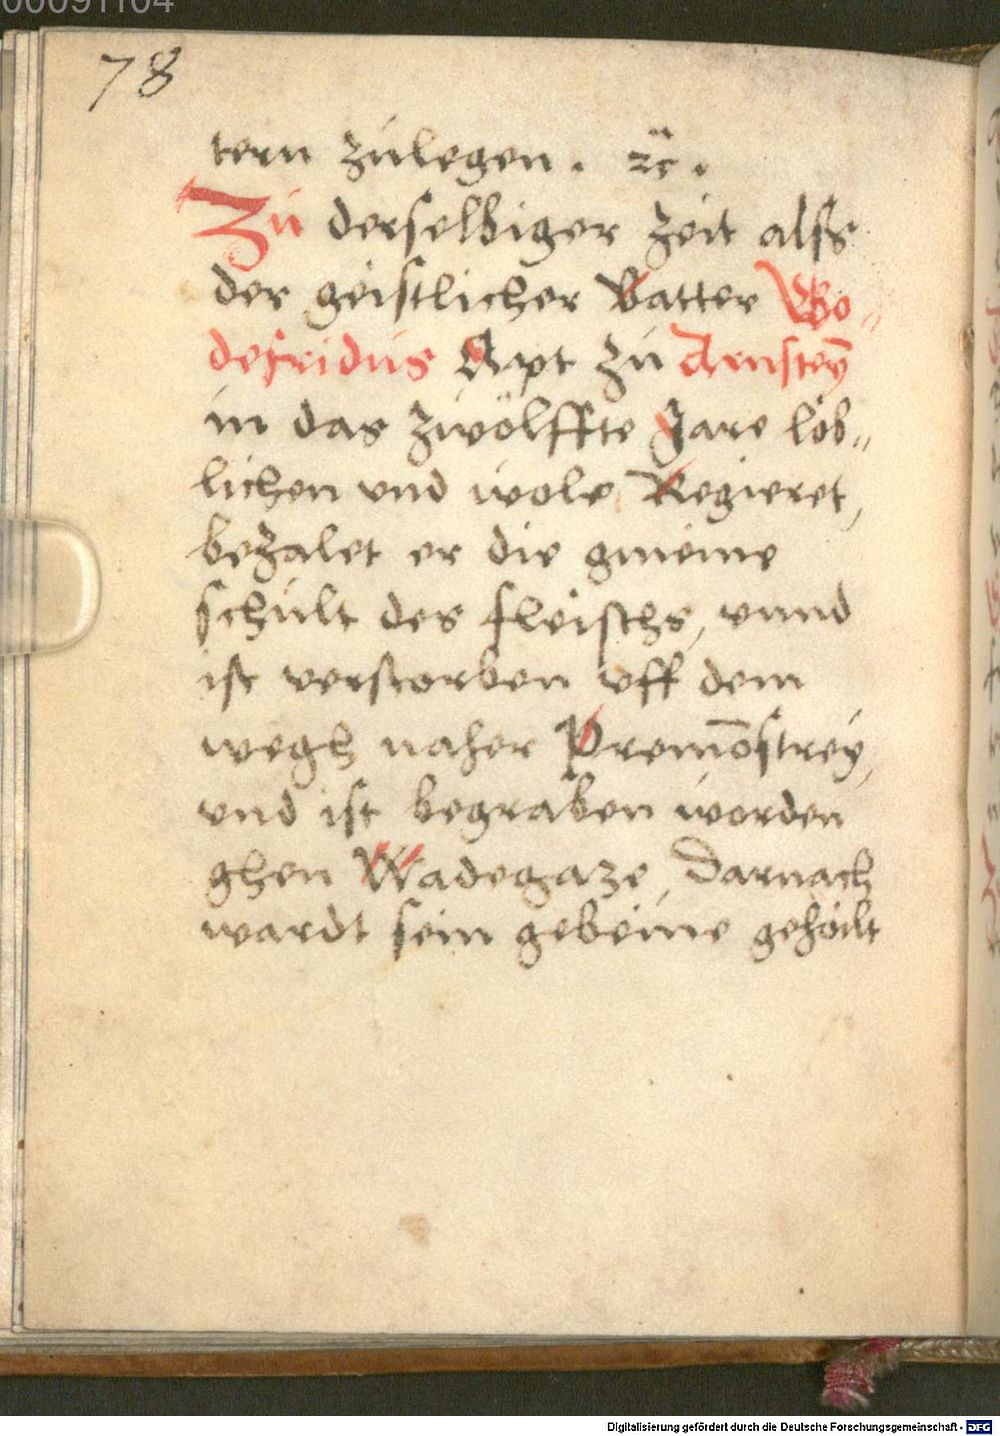 00091104
78
tern zulegen . ꝛc .
Zu derselbiger zeit alss
der geistlicher Vatter Go-
defridus Apt zu Arnsteÿ
in das zwölffte Jare löb-
lichen vnd wole Regieret,
bezalet er die gmeine
schult des fleischs, vnnd
ist verstorben vff dem
wegh naher Premōstrey,
vnd ist begraben worden
ghen Wadegaze, Darnach
wardt sein gebeine gehoilt
Digitalisierung gefördert durch die Deutsche Forschungsgemeinschaft - DFG